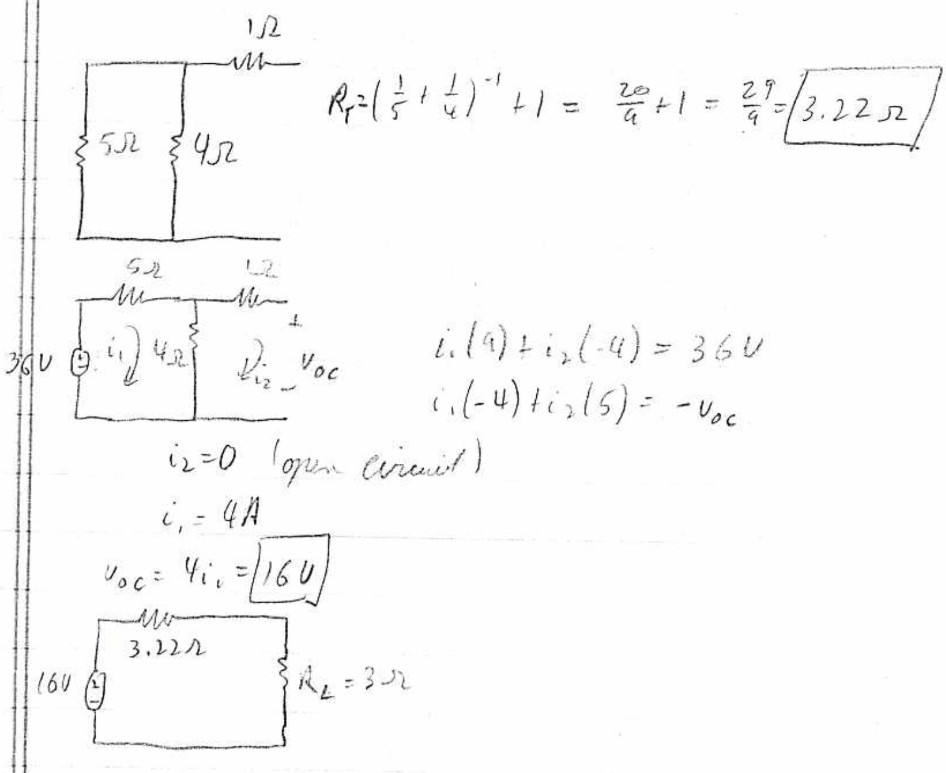 1Ω
R_T = (1/5 + 1/4)^-1 + 1 = 20/9 + 1 = 29/9 = 3.22 Ω
5Ω 4Ω
5Ω 1Ω
36V i₁ 4Ω i₂ + - v_oc
i₁(9) + i₂(-4) = 36V
i₁(-4) + i₂(5) = -v_oc
i₂ = 0 (open circuit)
i₁ = 4A
v_oc = 4i₁ = 16V
3.22Ω
16V R_L = 3Ω